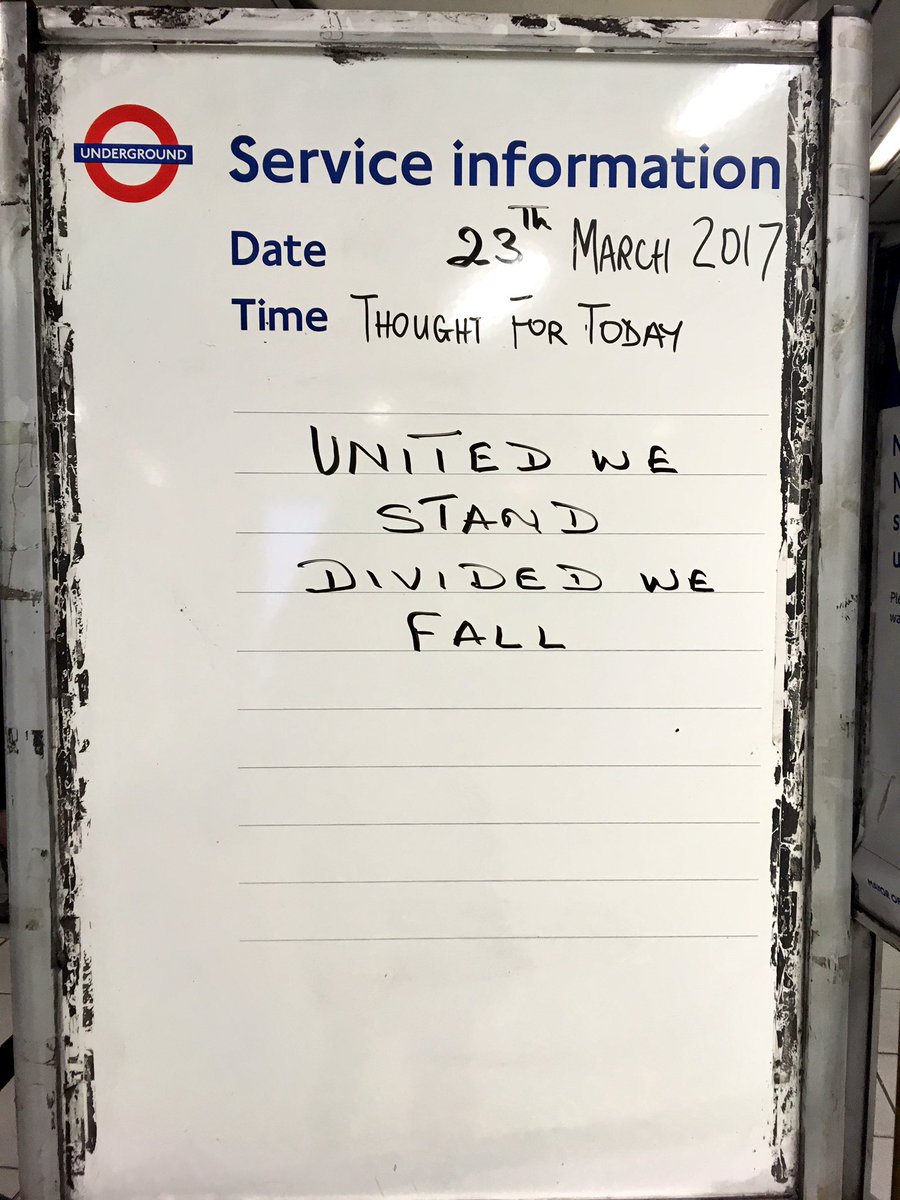 UNDERGROUND
Service information
Date 23Th MARCH 2017
Time THOUGHT FOR TODAY
UNITED WE
STAND
DIVIDED WE
FALL
MAYOR OF